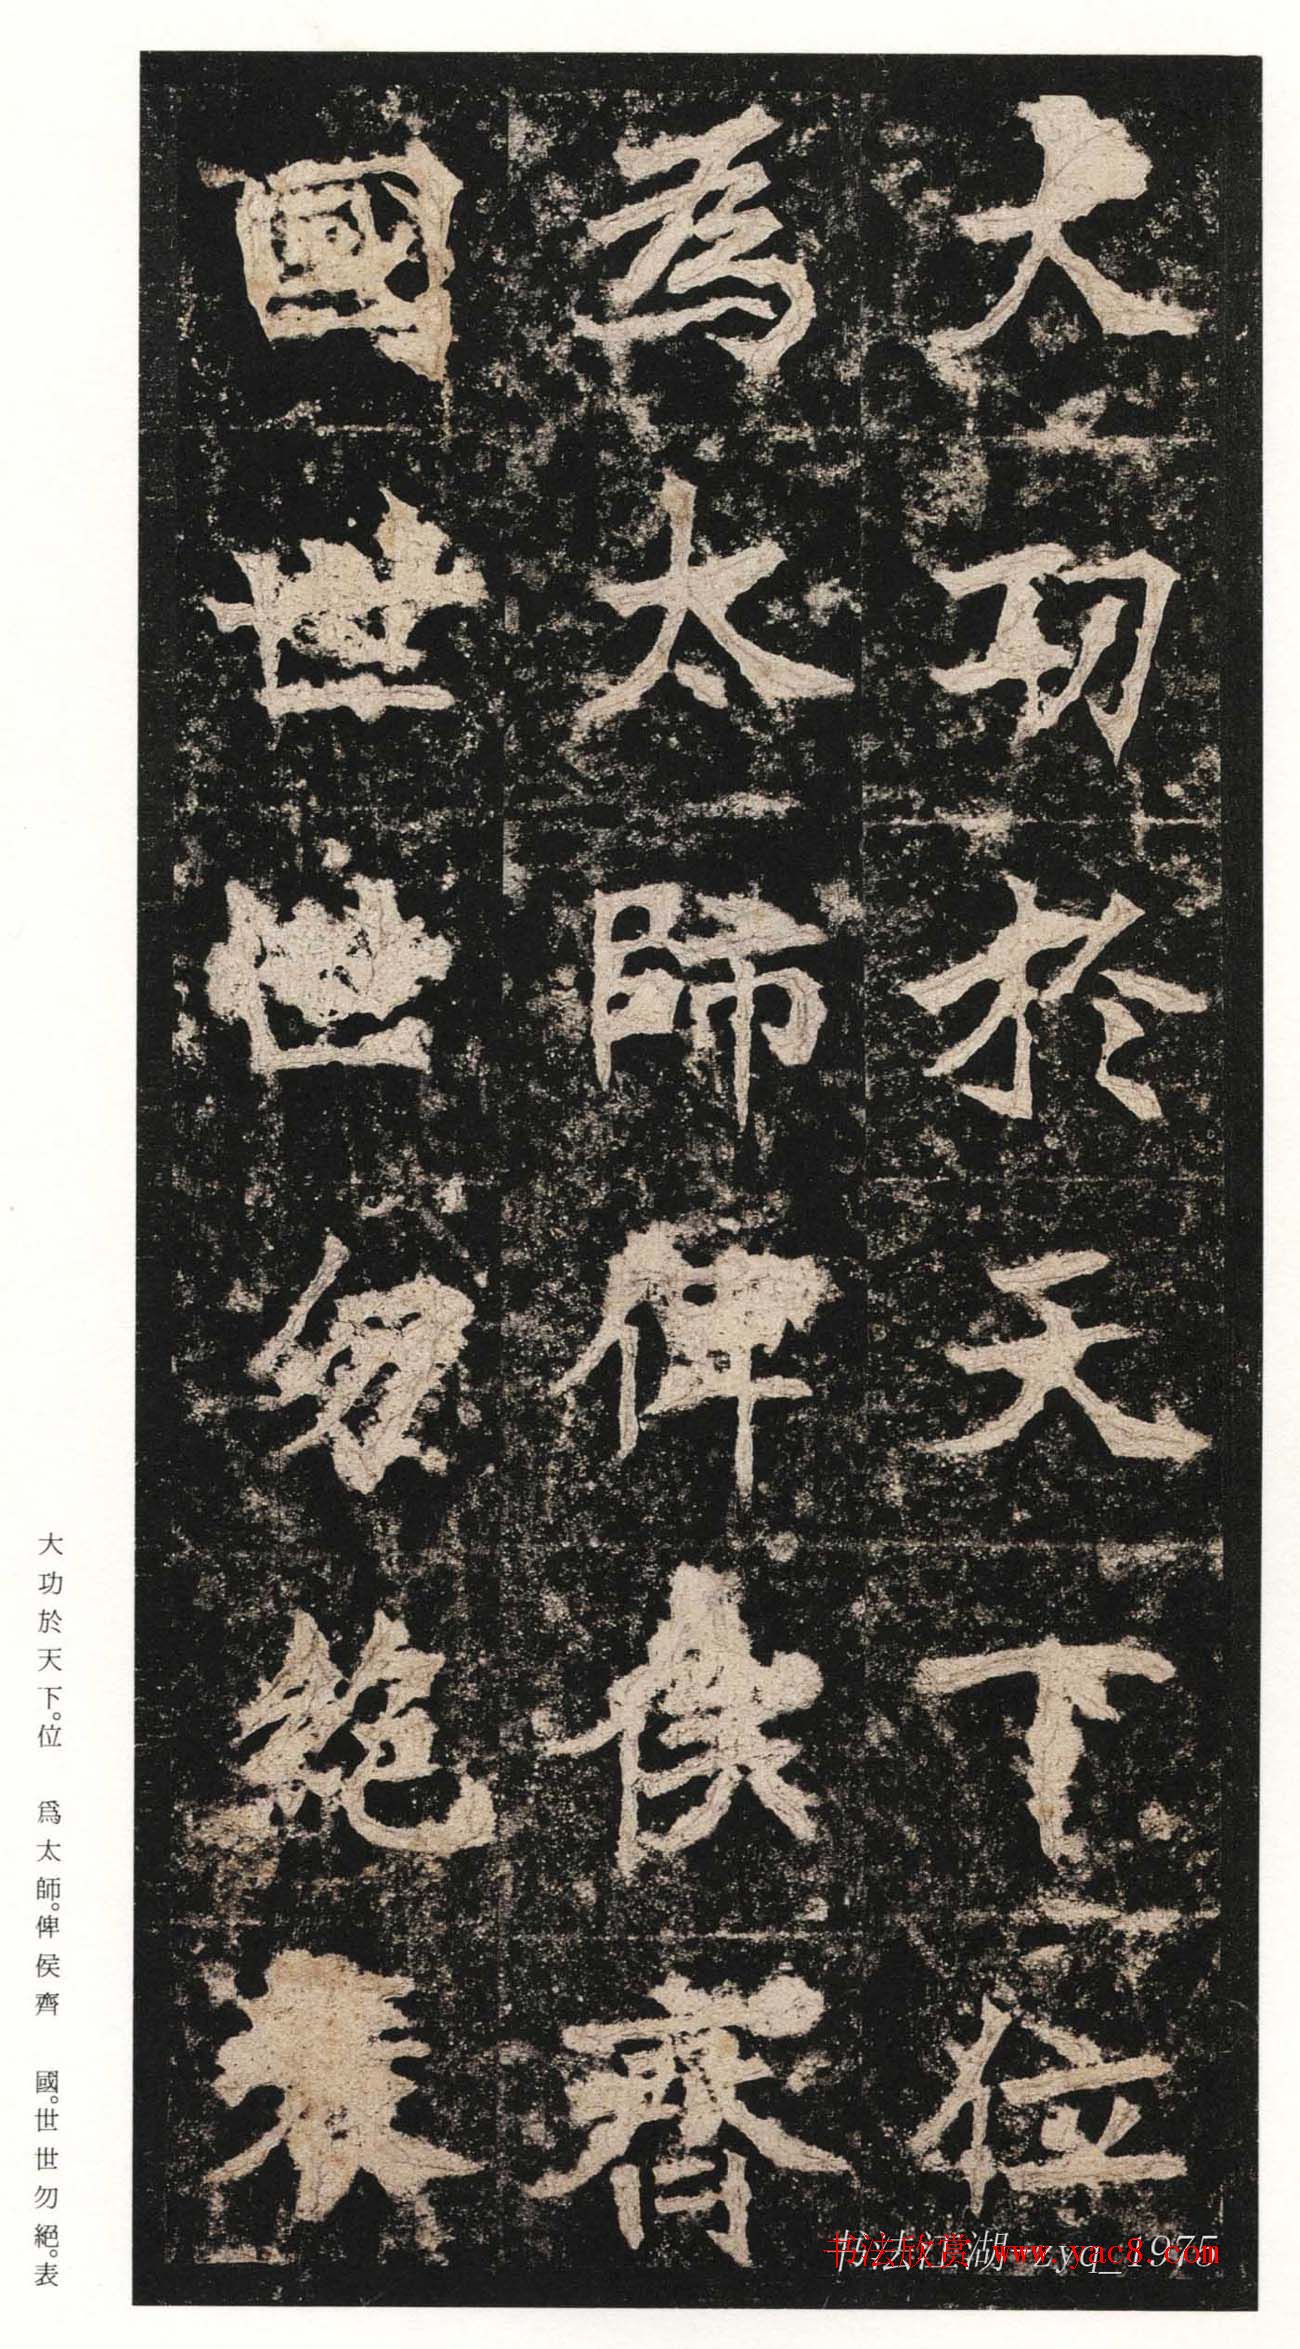 大功於天下位
為太師俾侯齊
國世世勿絕表
大功於天下。位　爲太師。俾侯齊　國。世世勿絕。表
书法江湖 zyq_1975
书法欣赏 www.yac8.com